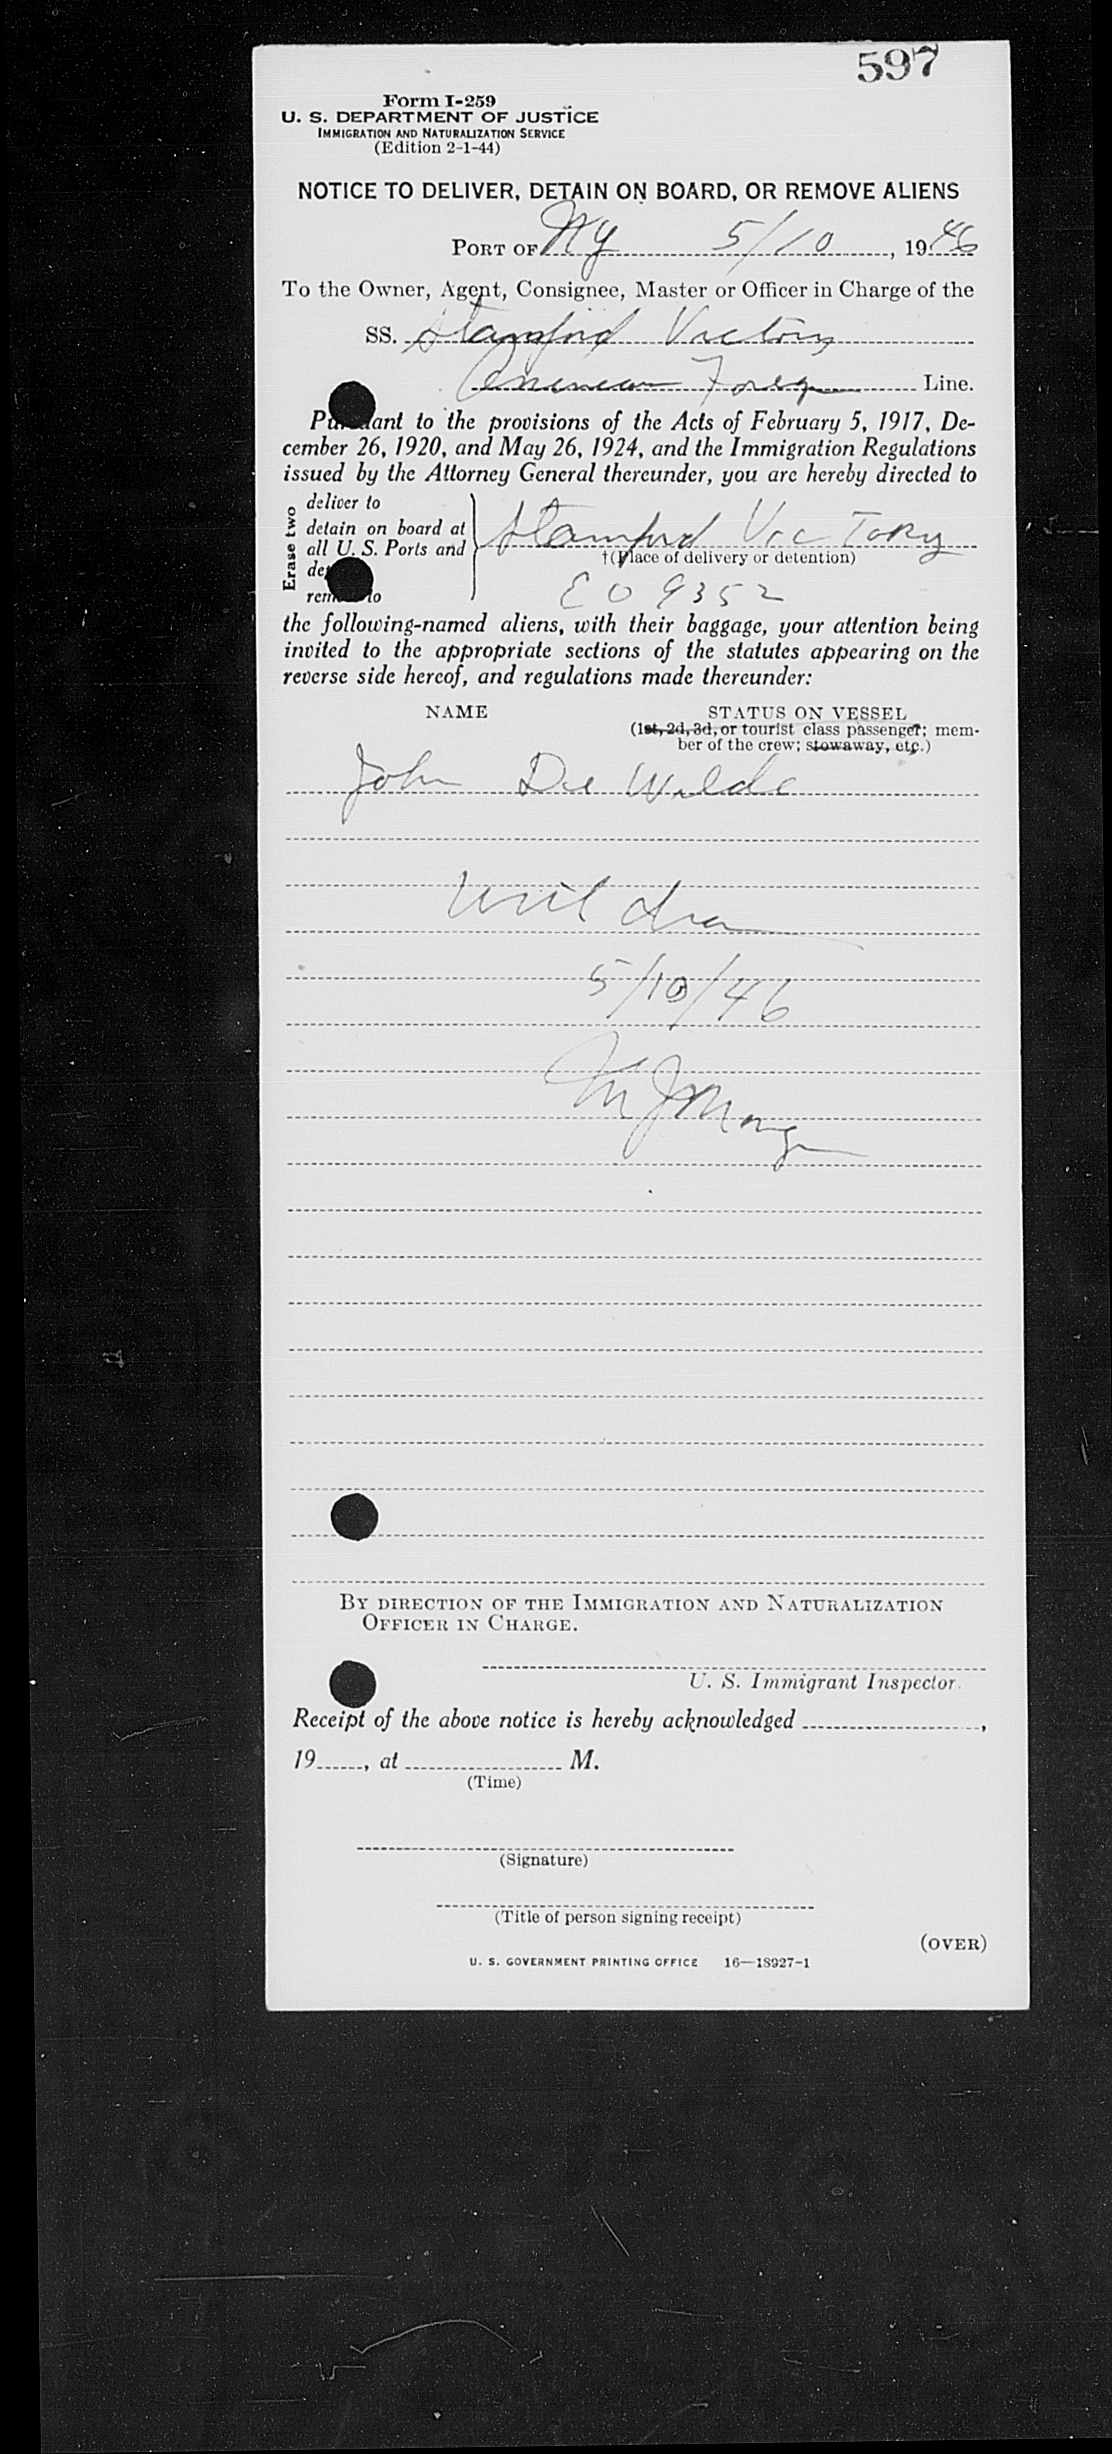 597
Form I-259
U. S. DEPARTMENT OF JUSTICE
IMMIGRATION AND NATURALIZATION SERVICE
(Edition 2-1-44)
NOTICE TO DELIVER, DETAIN ON BOARD, OR REMOVE ALIENS
PORT OF NY 5/10, 1946
To the Owner, Agent, Consignee, Master or Officer in Charge of the
SS. Stamford Victory
American Line.
to the provisions of the Acts of February 5, 1917, De-
cember 26, 1920, and May 26, 1924, and the Immigration Regulations
issued by the Attorney General thereunder, you are hereby directed to
Erase two
deliver to
detain on board at
all U. S. Ports and
to
Stamford Victory
†(Place of delivery or detention)
EO 9352
the following-named aliens, with their baggage, your attention being
invited to the appropriate sections of the statutes appearing on the
reverse side hereof, and regulations made thereunder:
NAME STATUS ON VESSEL
(1st, 2d, 3d, or tourist class passenger; mem-
ber of the crew; stowaway, etc.)
John De Wilde
5/10/46
BY DIRECTION OF THE IMMIGRATION AND NATURALIZATION
OFFICER IN CHARGE.
U. S. Immigrant Inspector.
Receipt of the above notice is hereby acknowledged ,
19 , at M.
(Time)
(Signature)
(Title of person signing receipt)
(OVER)
U. S. GOVERNMENT PRINTING OFFICE 16—18927-1